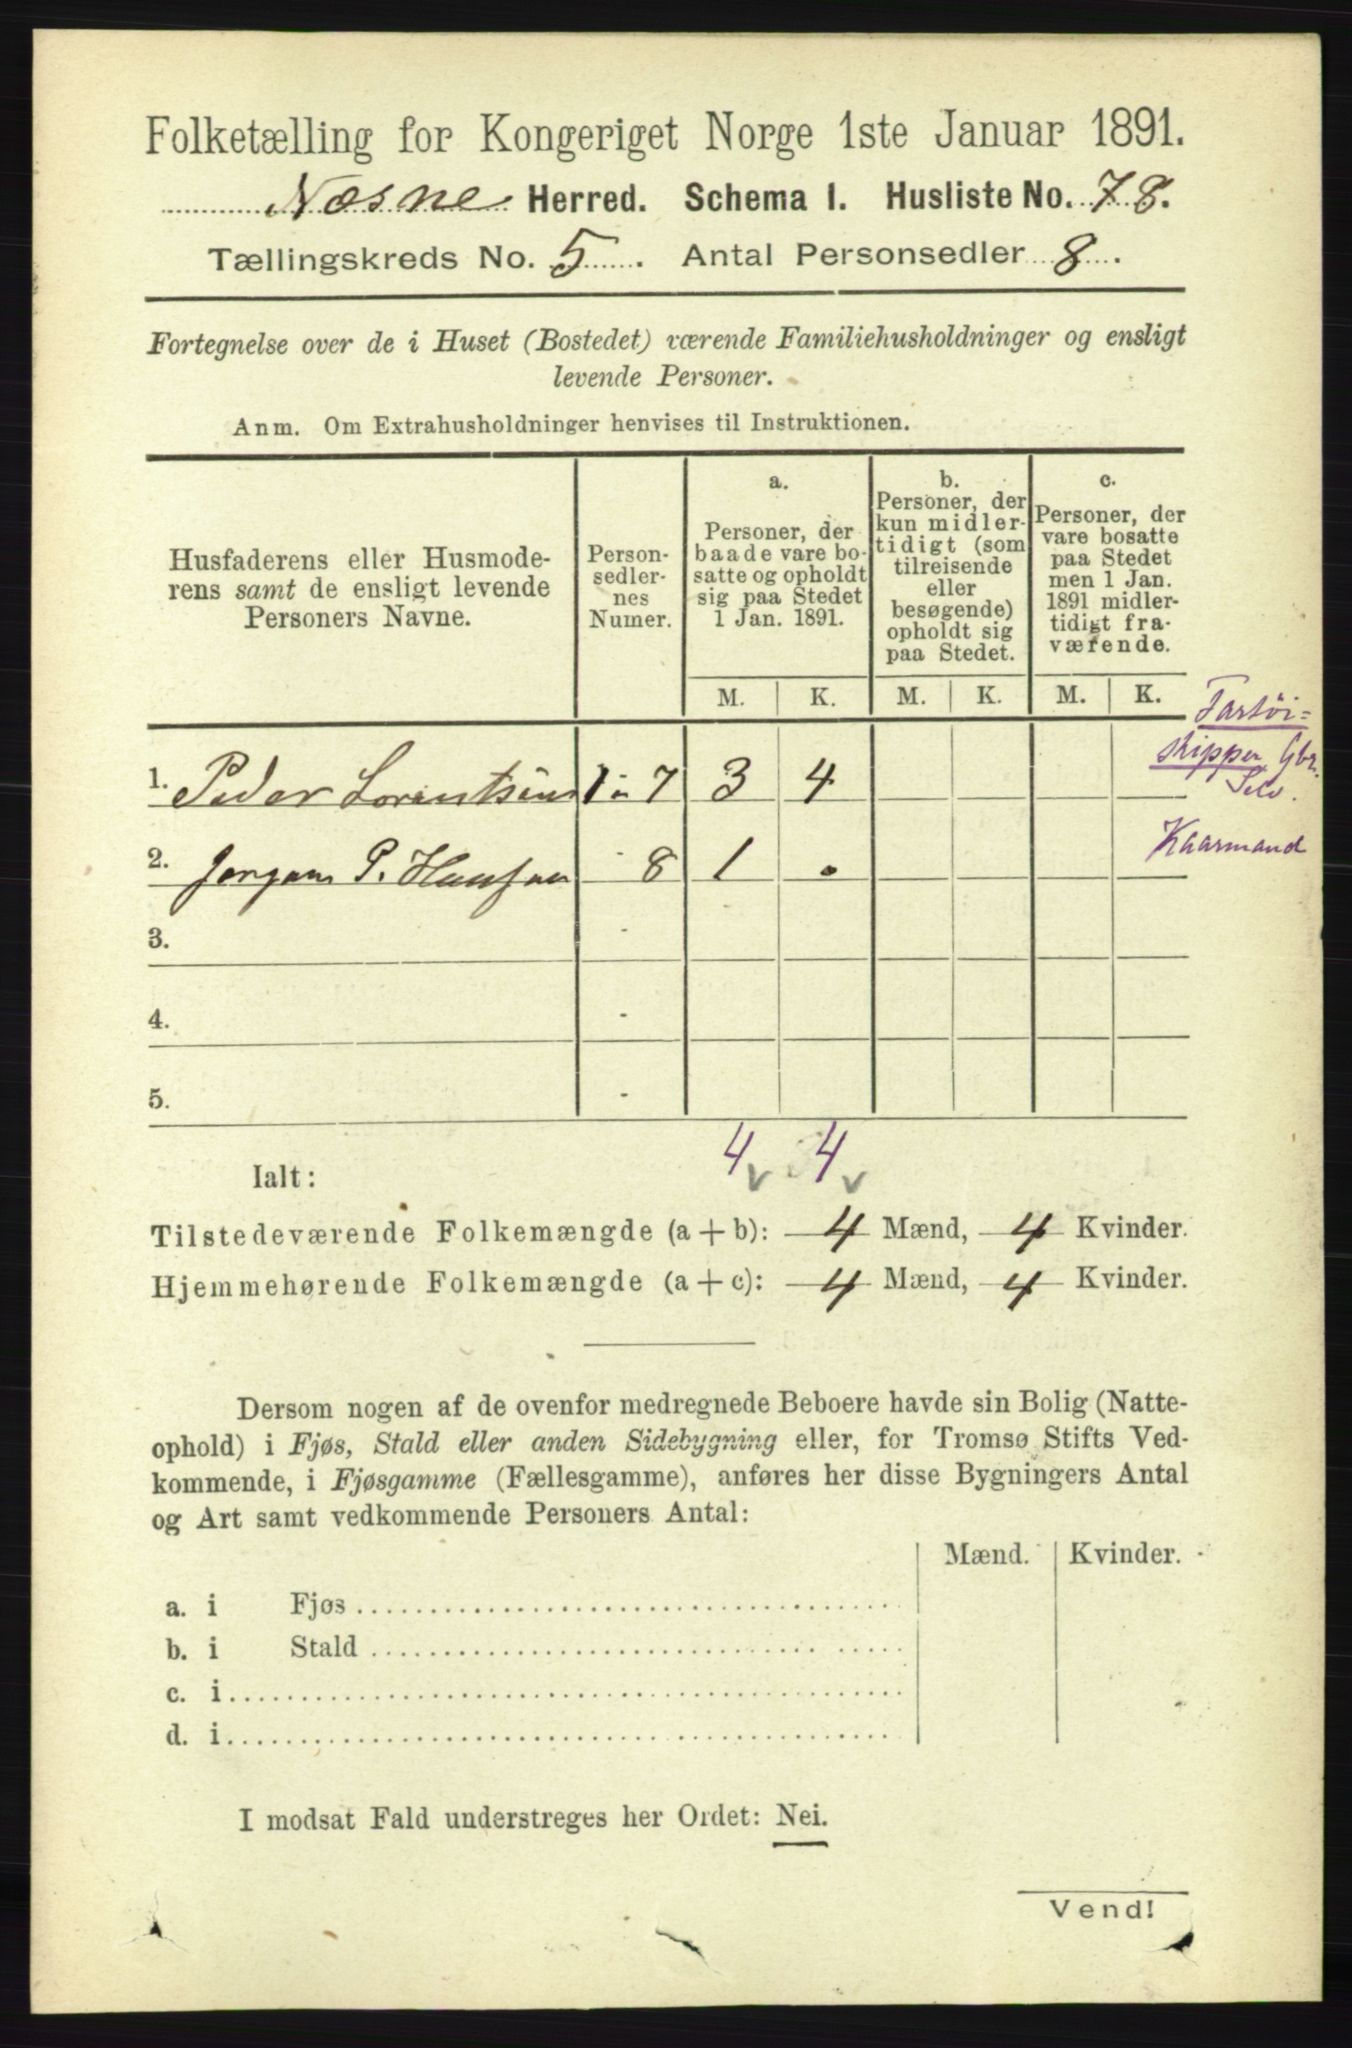 Folketælling for Kongeriget Norge 1ste Januar 1891.
Næsne Herred. Schema 1. Husliste No. 78.
Tællingskreds No. 5. Antal Personsedler 8.
Fortegnelse over de i Huset (Bostedet) værende Familiehusholdninger og ensligt
levende Personer.
Anm. Om Extrahusholdninger henvises til Instruktionen.
Husfaderens eller Husmode-
rens samt de ensligt levende
Personers Navne.
Person-
sedler-
nes
Numer.
a.
Personer, der
baade vare bo-
satte og opholdt
sig paa Stedet
1 Jan. 1891.
b.
Personer, der
kun midler-
tidigt (som
tilreisende
eller
besøgende)
opholdt sig
paa Stedet.
c.
Personer, der
vare bosatte
paa Stedet
men 1 Jan.
1891 midler-
tidigt fra-
værende.
M. K. M. K. M. K.
Fartøi=
skipper Gbr.
Selv.
1. Peder Lorentsen 1-7 3 4
Kaarmand
2. Jørgen P. Hansen - 8 1 •
3. -
4. -
5. -
4 4
Ialt:
Tilstedeværende Folkemængde (a + b): 4 Mænd, 4 Kvinder.
Hjemmehørende Folkemængde (a + c): 4 Mænd, 4 Kvinder.
Dersom nogen af de ovenfor medregnede Beboere havde sin Bolig (Natte-
ophold) i Fjøs, Stald eller anden Sidebygning eller, for Tromsø Stifts Ved-
kommende, i Fjøsgamme (Fællesgamme), anføres her disse Bygningers Antal
og Art samt vedkommende Personers Antal:
Mænd. Kvinder.
a. i Fjøs
b. i Stald
c. i
d. i
I modsat Fald understreges her Ordet: Nei.
Vend!